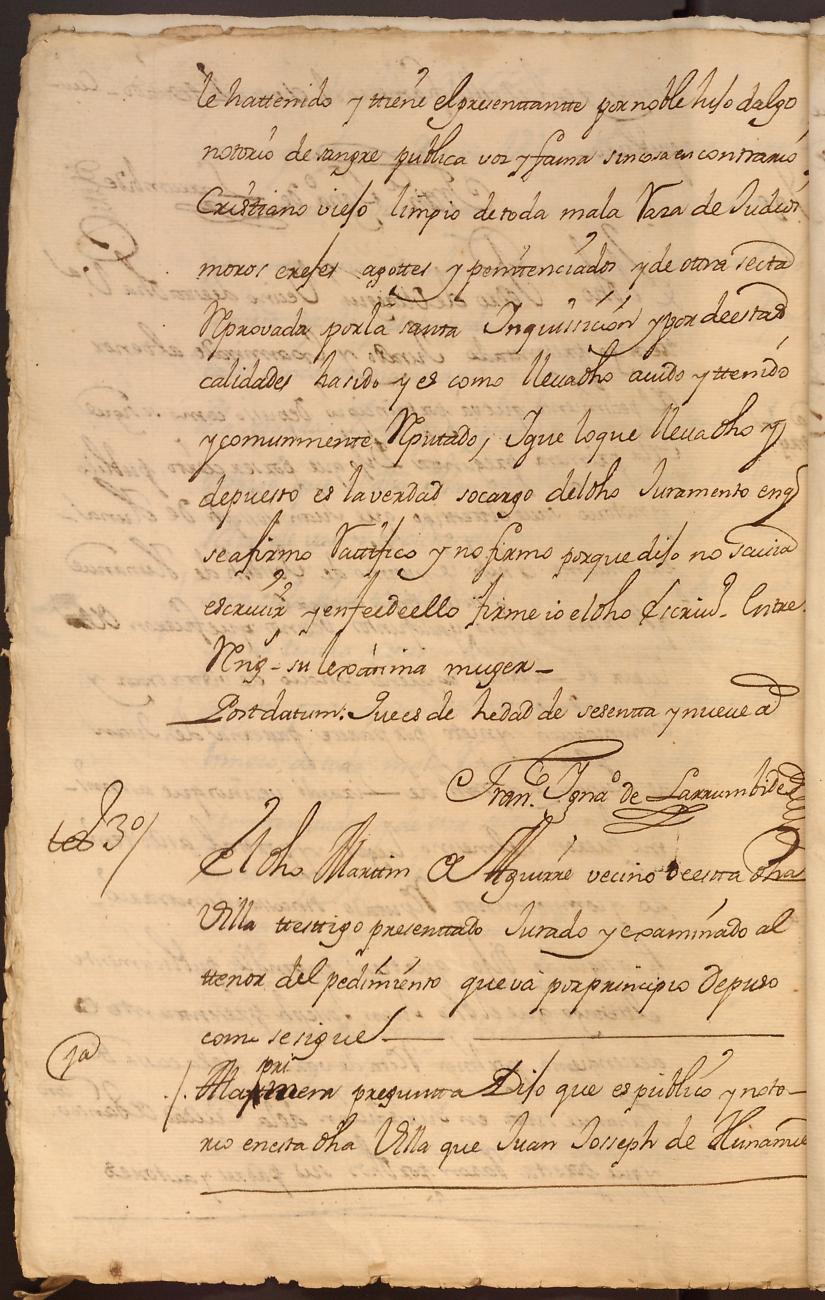 le hattenido y ttiene el presenttantte por noble hijo dalgo
notorio de sangre publica voz y fama sin cosa en contrario
Cristiano viejo limpio de toda mala Raza de Judios
moros erejes agottes y penitenciados y de ottra secta
Reprovada por la santa Inquisicion y por de estas
calidades ha sido y es como lleva dho avido y ttenido
y comunmente Reputado, I que lo que lleva dho y
depuesto es la verdad so cargo del dho Juramento en q
se afirmo Rattifico y no firmo porque dijo no savia
escrivir y en fee de ello firme io el dho Escriv. Entre
Reng. su lexitima muger _
Postdatum. I ue es de hedad de sesentta y nueve a
Fran.co Igna.o de Larrumbide
tes 3º /
El dho Marttin de Aguirre vecino de estta dha
Villa ttesttigo presenttado Jurado y examinado al
ttenor del pedimiento que va por principio depuso
como se sigue
1a
/. A la primera pregunta Dijo que es publico y noto-
rio en esta dha Villa que Juan Josseph de Hunamu